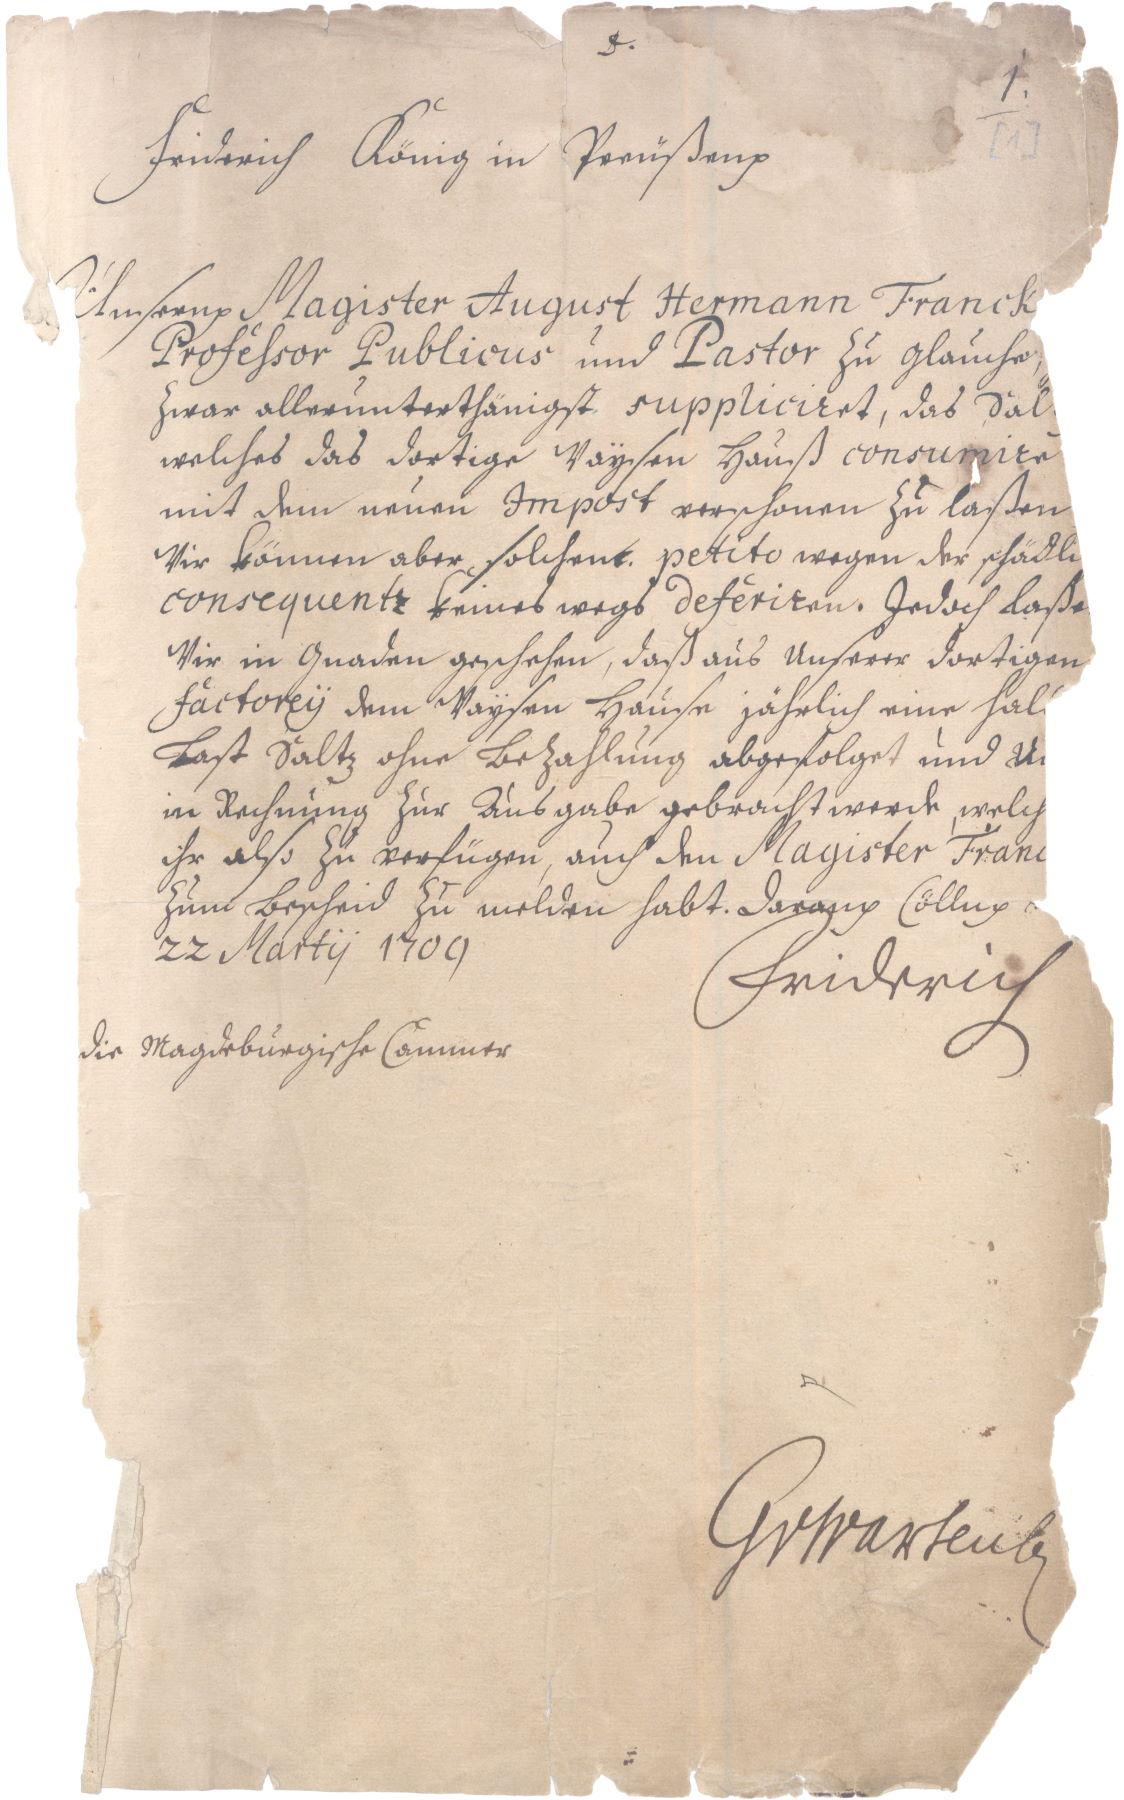 1.
[1]
Friderich König in Preüßen
Unsern Magister August Hermann Franck
Professor Publicus und Pastor zu Glauche,
zwar allerunterthänigst suppliciret, das Sal
welches das dortige Waysen Hauß consumire
mit dem neuen Impost verschonen zu laßen
Wir können aber solchem petito wegen der schädli
consequentz keines wegs deferiren. Jedoch laße
Wir in Gnaden geschehen, daß aus Unserer dortigen
Factoreÿ dem Waysen Hause jährlich eine hal
Last Saltz ohne Bezahlung abgefolget und Un
in Rechnung zur Ausgabe gebracht werde, welch
ihr also zu verfügen, auch den Magister Franc
zum Bescheid zu melden habt. Cölln
22 Martij 1709
Friderich
die Magdebürgische Cammer
GvWartenb